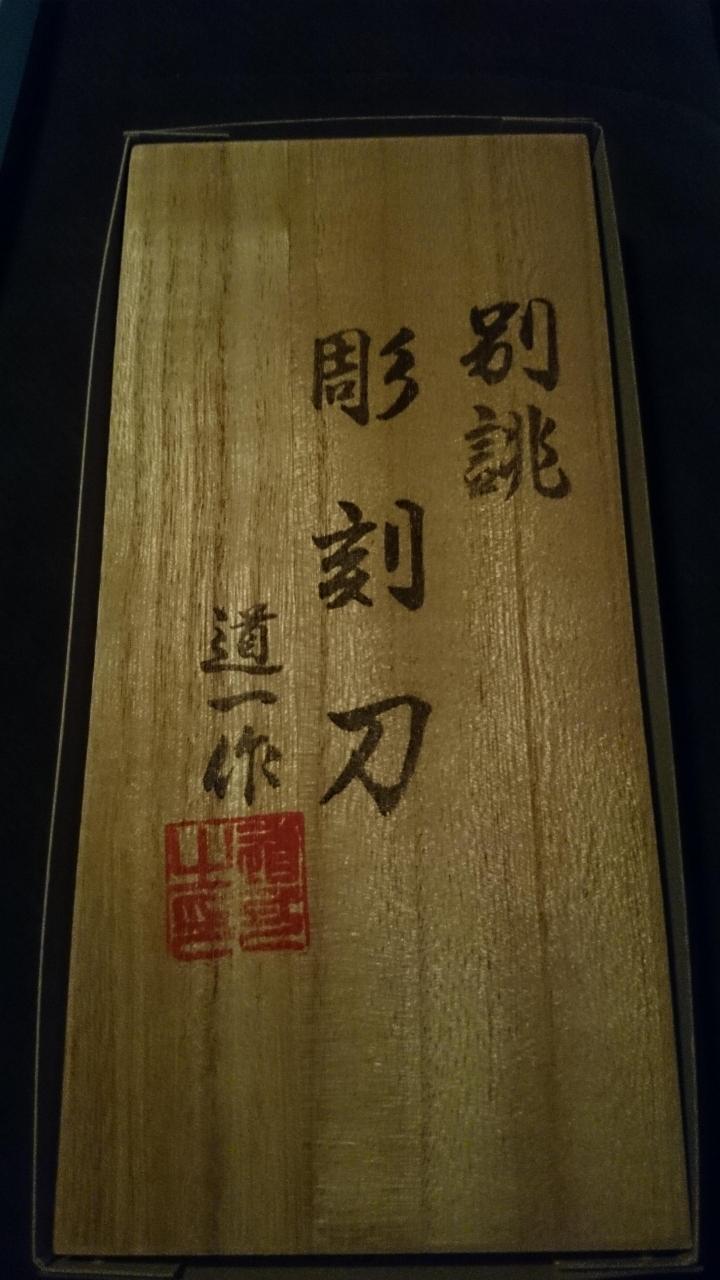 別誂
彫刻刀
道一作